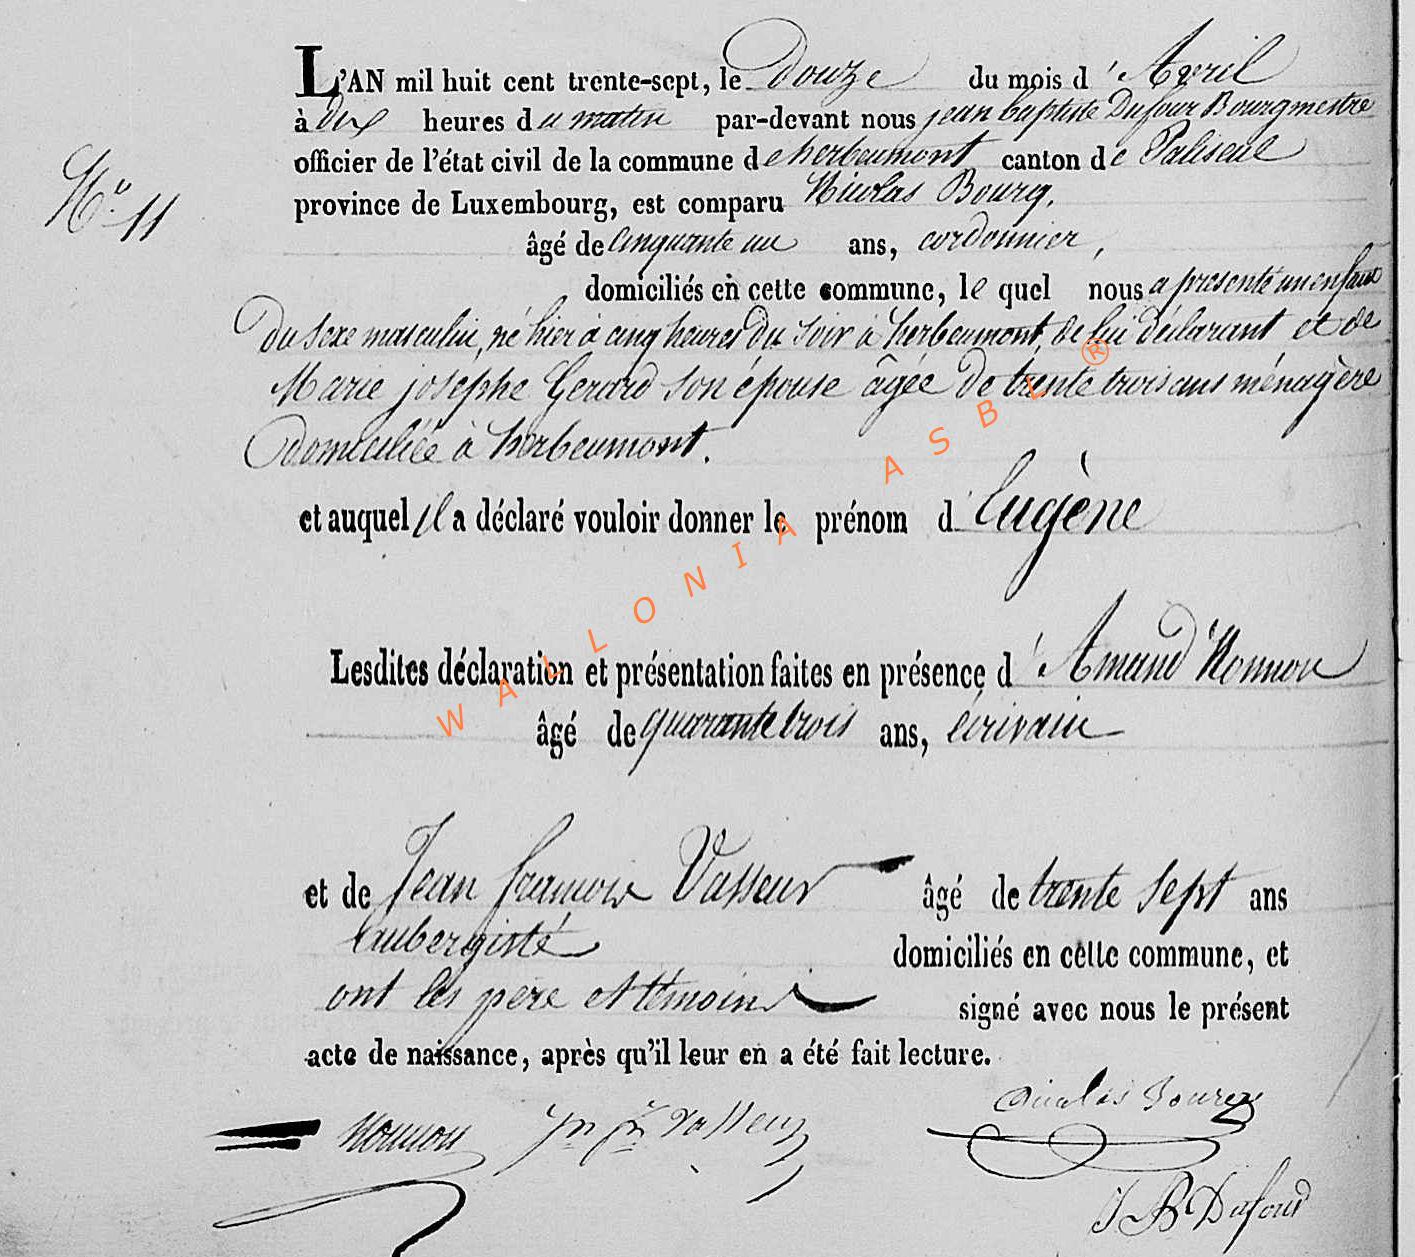 L'AN mil huit cent trente-sept, le douze du mois d'Avril
à dix heures du matin par-devant nous jean baptiste Dufour Bourgmestre
officier de l'état civil de la commune de herbeumont canton de Paliseul
N° 11
province de Luxembourg, est comparu Nicolas Bourcq,
âgé de cinquante un ans, cordonnier,
domiciliés en cette commune, le quel nous a présenté un enfant
du sexe masculin, né hier à cinq heures du soir à herbeumont, de lui déclarant et de
Marie josephe Gerard son épouse âgée de trente trois ans ménagère
domiciliée à herbeumont.
et auquel il a déclaré vouloir donner le prénom d'Eugène
Lesdites déclaration et présentation faites en présence d'Amand Nonnon
âgé de quarante trois ans, écrivain
et de Jean françois Vasseur âgé de trente sept ans
aubergiste domiciliés en cette commune, et
ont les père et témoins signé avec nous le présent
acte de naissance, après qu'il leur en a été fait lecture.
Nicolas Bourcq
Nonnon Jn fs Vasseur
J B Dufour
WALLONIA ASBL ®